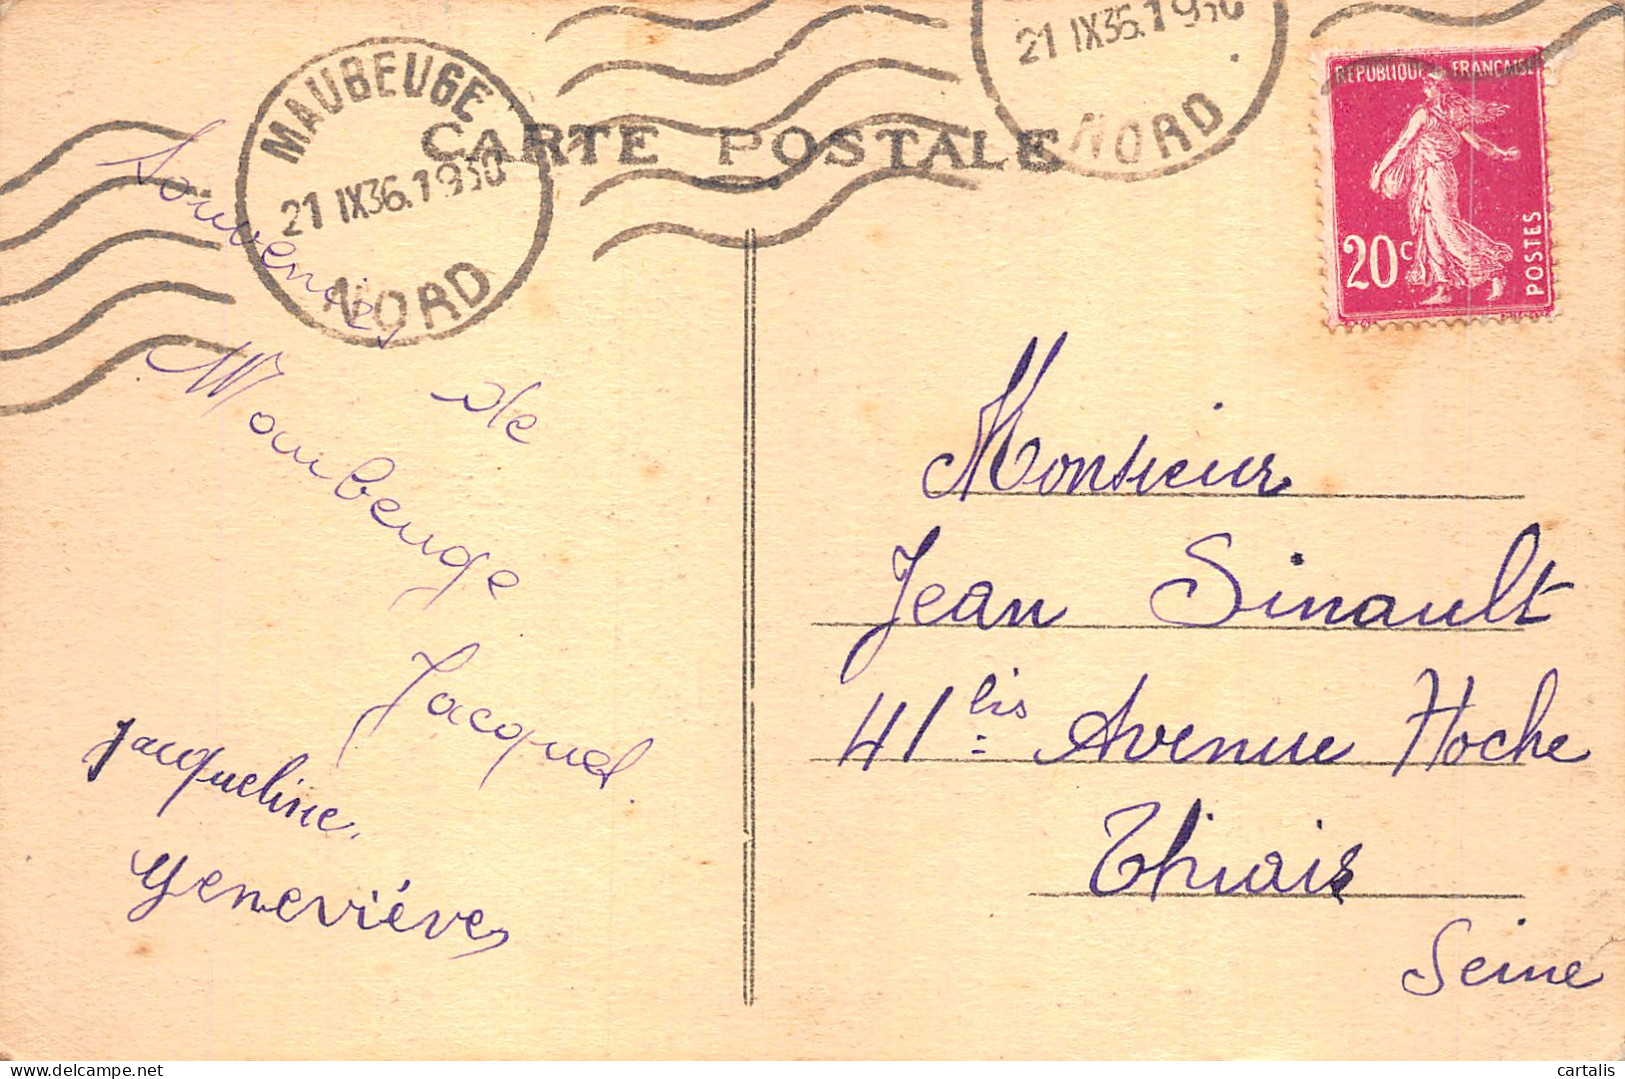 MAUBEUGE
21 IX36.1930
NORD
21 IX36.1930
NORD
CARTE POSTALE
REPUBLIQUE FRANÇAISE
20c
POSTES
Souvenirs
de
Maubeuge
Jacquel.
Jacqueline.
Geneviève
Monsieur
Jean Sinault
41 bis Avenue Hoche
Thiais
Seine
cartalis